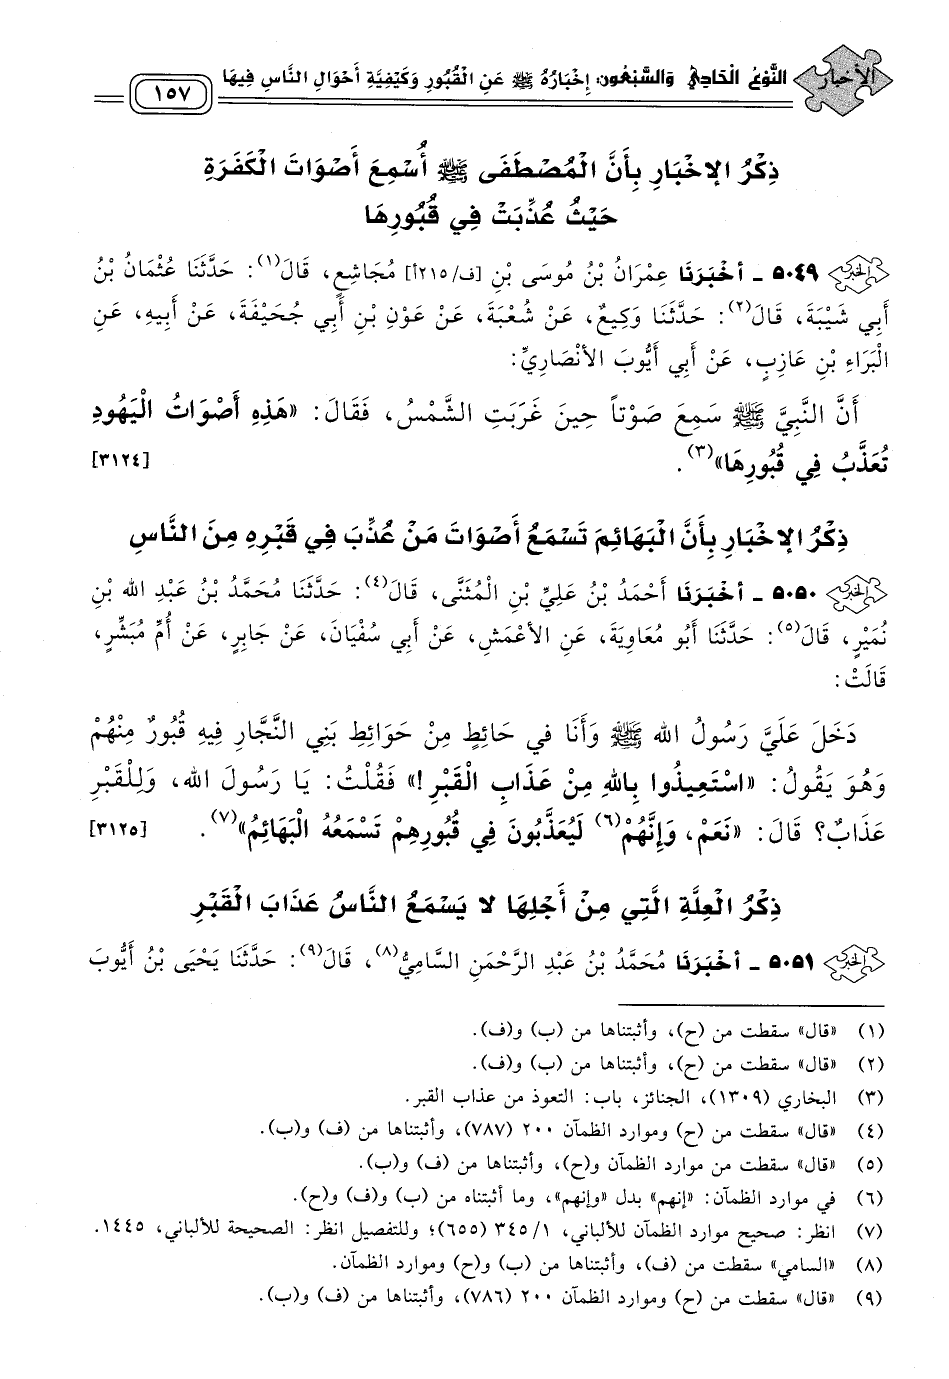 الأخبار
النَّوْعُ الْحَادِي وَالسَّبْعُون: إِخْبَارُهُ ﷺ عَنِ الْقُبُورِ وَكَيْفِيَّةِ أَحْوَالِ النَّاسِ فِيهَا
١٥٧
ذِكْرُ الإِخْبَارِ بِأَنَّ الْمُصْطَفَى ﷺ أُسْمِعَ أَصْوَاتَ الْكَفَرَةِ
حَيْثُ عُذِّبَتْ فِي قُبُورِهَا
٥٠٤٩ - أَخْبَرَنَا عِمْرَانُ بْنُ مُوسَى بْنِ [ف/٢١٥أ] مُجَاشِعٍ، قَالَ(١): حَدَّثَنَا عُثْمَانُ بْنُ
أَبِي شَيْبَةَ، قَالَ(٢): حَدَّثَنَا وَكِيعٌ، عَنْ شُعْبَةَ، عَنْ عَوْنِ بْنِ أَبِي جُحَيْفَةَ، عَنْ أَبِيهِ، عَنِ
الْبَرَاءِ بْنِ عَازِبٍ، عَنْ أَبِي أَيُّوبَ الأَنْصَارِيِّ:
أَنَّ النَّبِيَّ ﷺ سَمِعَ صَوْتاً حِينَ غَرَبَتِ الشَّمْسُ، فَقَالَ: «هَذِهِ أَصْوَاتُ الْيَهُودِ
تُعَذَّبُ فِي قُبُورِهَا»(٣). [٣١٢٤]
ذِكْرُ الإِخْبَارِ بِأَنَّ الْبَهَائِمَ تَسْمَعُ أَصْوَاتَ مَنْ عُذِّبَ فِي قَبْرِهِ مِنَ النَّاسِ
٥٠٥٠ - أَخْبَرَنَا أَحْمَدُ بْنُ عَلِيِّ بْنِ الْمُثَنَّى، قَالَ(٤): حَدَّثَنَا مُحَمَّدُ بْنُ عَبْدِ الله بْنِ
نُمَيْرٍ، قَالَ(٥): حَدَّثَنَا أَبُو مُعَاوِيَةَ، عَنِ الأَعْمَشِ، عَنْ أَبِي سُفْيَانَ، عَنْ جَابِرٍ، عَنْ أُمِّ مُبَشِّرٍ،
قَالَتْ:
دَخَلَ عَلَيَّ رَسُولُ الله ﷺ وَأَنَا في حَائِطٍ مِنْ حَوَائِطِ بَنِي النَّجَّارِ فِيهِ قُبُورٌ مِنْهُمْ
وَهُوَ يَقُولُ: «اسْتَعِيذُوا بِاللهِ مِنْ عَذَابِ الْقَبْرِ!» فَقُلْتُ: يَا رَسُولَ الله، وَلِلْقَبْرِ
عَذَابٌ؟ قَالَ: «نَعَمْ، وَإِنَّهُمْ(٦) لَيُعَذَّبُونَ فِي قُبُورِهِمْ تَسْمَعُهُ الْبَهَائِمُ»(٧). [٣١٢٥]
ذِكْرُ الْعِلَّةِ الَّتِي مِنْ أَجْلِهَا لا يَسْمَعُ النَّاسُ عَذَابَ الْقَبْرِ
٥٠٥١ - أَخْبَرَنَا مُحَمَّدُ بْنُ عَبْدِ الرَّحْمَنِ السَّامِيُّ(٨)، قَالَ(٩): حَدَّثَنَا يَحْيَى بْنُ أَيُّوبَ
(١) «قال» سقطت من (ح)، وأثبتناها من (ب) و(ف).
(٢) «قال» سقطت من (ح)، وأثبتناها من (ب) و(ف).
(٣) البخاري (١٣٠٩)، الجنائز، باب: التعوذ من عذاب القبر.
(٤) «قال» سقطت من (ح) وموارد الظمآن ٢٠٠ (٧٨٧)، وأثبتناها من (ف) و(ب).
(٥) «قال» سقطت من موارد الظمآن و(ح)، وأثبتناها من (ف) و(ب).
(٦) في موارد الظمآن: «إنهم» بدل «وإنهم»، وما أثبتناه من (ب) و(ف) و(ح).
(٧) انظر: صحيح موارد الظمآن للألباني، ١/ ٣٤٥ (٦٥٥)؛ وللتفصيل انظر: الصحيحة للألباني، ١٤٤٥.
(٨) «السامي» سقطت من (ف)، وأثبتناها من (ب) و(ح) وموارد الظمآن.
(٩) «قال» سقطت من (ح) وموارد الظمآن ٢٠٠ (٧٨٦)، وأثبتناها من (ف) و(ب).